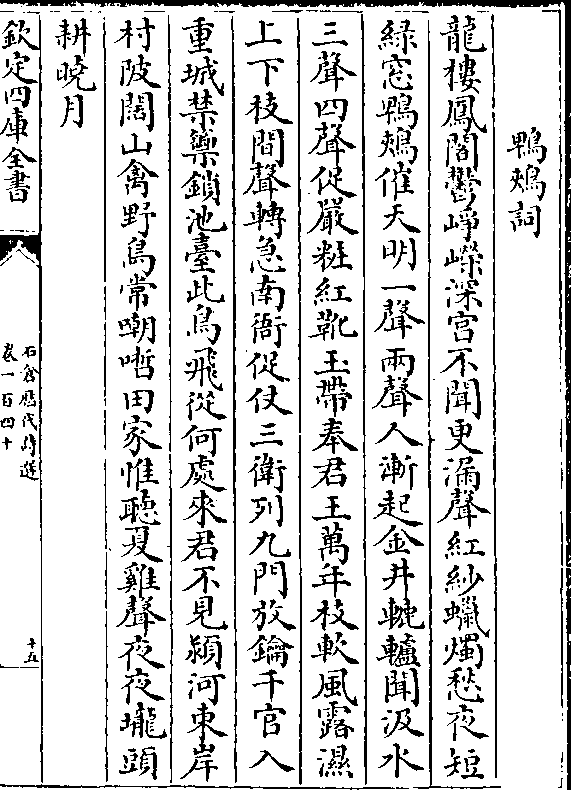 鴨鵊詞
龍樓鳳閣鬱崢嶸深宫不聞更漏聲紅紗蠟燭愁夜短
緑窓鴨鵊催天明一聲兩聲人漸起金井轆轤聞汲水
三聲四聲促嚴粧紅靴玉帶奉君王萬年枝軟風露濕
上下枝間聲轉急南衙促仗三衛列九門放鑰千官入
重城禁籞鎖池臺此鳥飛從何處來君不見潁河東岸
村陂闊山禽野鳥常嘲哳田家惟聽夏雞聲夜夜壠頭
耕曉月
欽定四庫全書
石倉歴代詩選
卷一百四十
十五